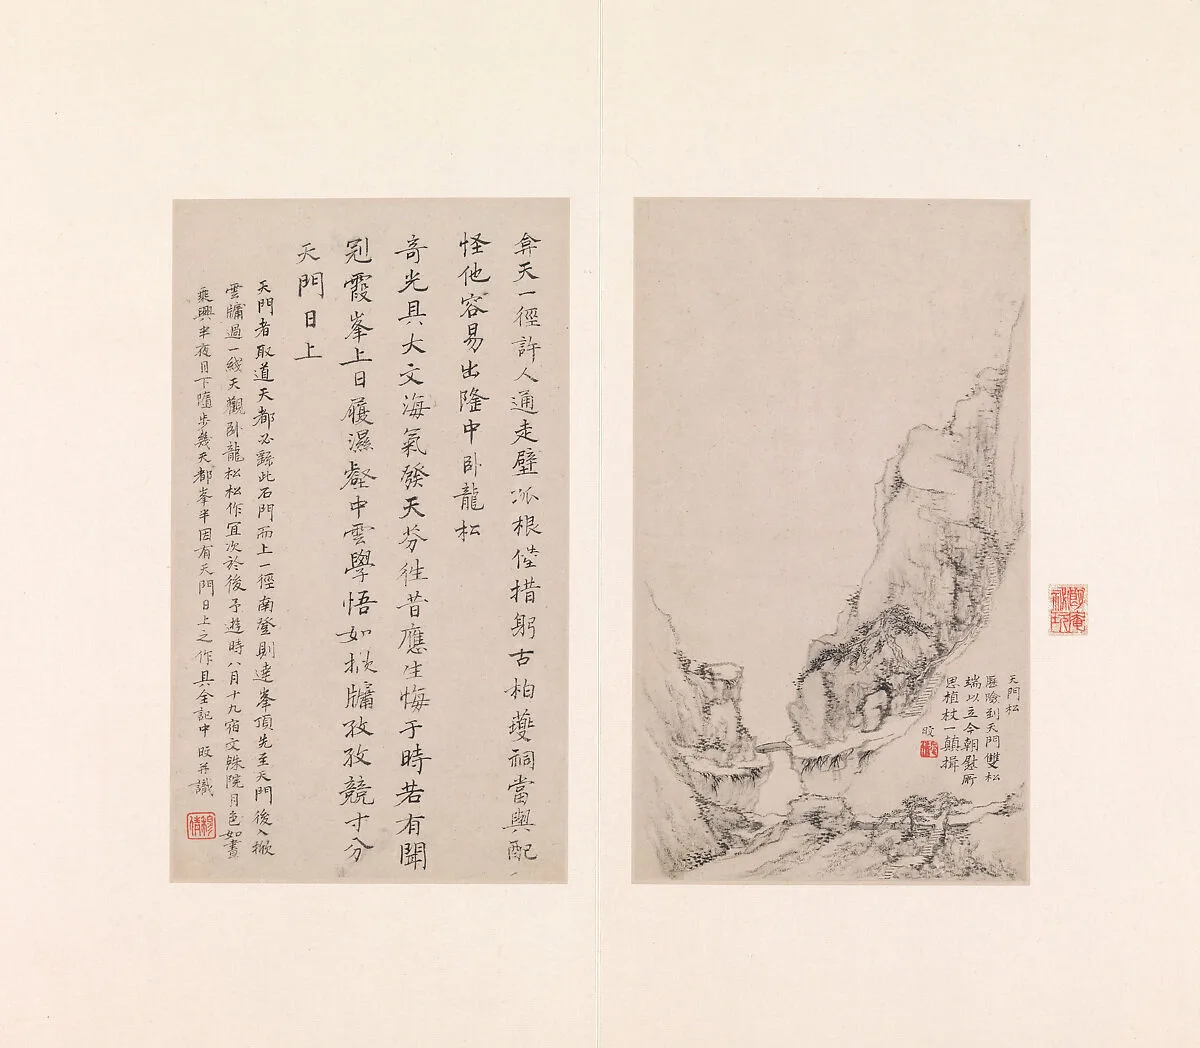 天門松
歷險到天門雙松
端以立今朝慰所
思植杖一顛揖
㫤
弇天一徑許人通走壁孤根倦措躬古柏夔祠當與配
怪他容易出隆中臥龍松
奇光具大文海氣發天芬往昔應生悔于時若有聞
冠霞峯上日履濕壑中雲學悟如松牖孜孜競寸分
天門日上
天門者取道天都必繇此石門而上一徑南登則達峯頂先至天門後入
雲牖過一綫天觀臥龍松松作宜次於後予遊時八月十九宿文殊院月色如晝
乘興半夜月下隨步幾天都峯半因有天門日上之作具全記中㫤并識